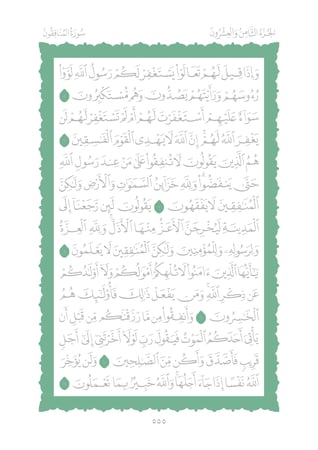 الجزء الثامن والعشرون سورة المنافقون
وَإِذَا قِيلَ لَهُمْ تَعَالَوْا۟ يَسْتَغْفِرْ لَكُمْ رَسُولُ ٱللَّهِ لَوَّوْا۟
رُءُوسَهُمْ وَرَأَيْتَهُمْ يَصُدُّونَ وَهُم مُّسْتَكْبِرُونَ
سَوَآءٌ عَلَيْهِمْ أَسْتَغْفَرْتَ لَهُمْ أَمْ لَمْ تَسْتَغْفِرْ لَهُمْ لَن
يَغْفِرَ ٱللَّهُ لَهُمْ إِنَّ ٱللَّهَ لَا يَهْدِى ٱلْقَوْمَ ٱلْفَـٰسِقِينَ
هُمُ ٱلَّذِينَ يَقُولُونَ لَا تُنفِقُوا۟ عَلَىٰ مَنْ عِندَ رَسُولِ ٱللَّهِ
حَتَّىٰ يَنفَضُّوا۟ وَلِلَّهِ خَزَآئِنُ ٱلسَّمَـٰوَٰتِ وَٱلْأَرْضِ وَلَـٰكِنَّ
ٱلْمُنَـٰفِقِينَ لَا يَفْقَهُونَ يَقُولُونَ لَئِن رَّجَعْنَآ إِلَى
ٱلْمَدِينَةِ لَيُخْرِجَنَّ ٱلْأَعَزُّ مِنْهَا ٱلْأَذَلَّ وَلِلَّهِ ٱلْعِزَّةُ
وَلِرَسُولِهِۦ وَلِلْمُؤْمِنِينَ وَلَـٰكِنَّ ٱلْمُنَـٰفِقِينَ لَا يَعْلَمُونَ
يَـٰٓأَيُّهَا ٱلَّذِينَ ءَامَنُوا۟ لَا تُلْهِكُمْ أَمْوَٰلُكُمْ وَلَآ أَوْلَـٰدُكُمْ
عَن ذِكْرِ ٱللَّهِ وَمَن يَفْعَلْ ذَٰلِكَ فَأُو۟لَـٰٓئِكَ هُمُ
ٱلْخَـٰسِرُونَ وَأَنفِقُوا۟ مِن مَّا رَزَقْنَـٰكُم مِّن قَبْلِ أَن
يَأْتِىَ أَحَدَكُمُ ٱلْمَوْتُ فَيَقُولَ رَبِّ لَوْلَآ أَخَّرْتَنِىٓ إِلَىٰٓ أَجَلٍ
قَرِيبٍ فَأَصَّدَّقَ وَأَكُن مِّنَ ٱلصَّـٰلِحِينَ وَلَن يُؤَخِّرَ
ٱللَّهُ نَفْسًا إِذَا جَآءَ أَجَلُهَا وَٱللَّهُ خَبِيرٌۢ بِمَا تَعْمَلُونَ
٥٥٥